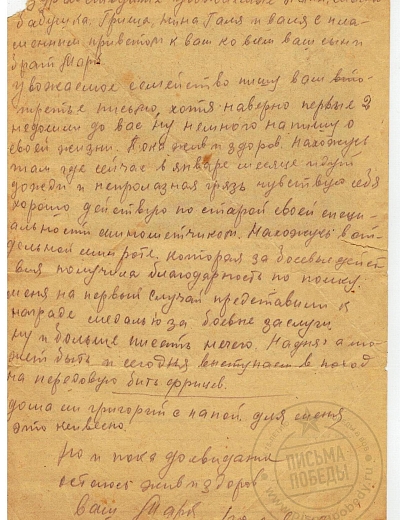 Здравствуйте уважаемые
бабушка. Гриша, Нина Галя и Ваня с пла-
менным приветом к вам ко всем ваш сын и
брат Марк
Уважаемое семейство пишу вам вто-
третье письмо, хотя наверно первые 2
не дошли до вас ну немного напишу о
своей жизни. Пока жив и здоров. Нахожусь
там где сейчас в январе месяце идут
дожди и непролазная грязь чувствую себя
хорошо действую по старой своей специ-
альности минометчиком. Нахожусь в от-
дельной мин роте. которая за боевые дейст
вия получила благодарность по полку.
меня на первый случай представили к
награде медалью за боевые заслуги.
ну и больше писать нечего. На днях а мо-
жет быть и сегодня выступаем в поход
на передовую бить фрицев.
дома ли григорий с папой для меня
это неизвестно.
Но и пока до свидания
остаюсь жив и здоров
Ваш Марк
ПИСЬМА
ПОБЕДЫ